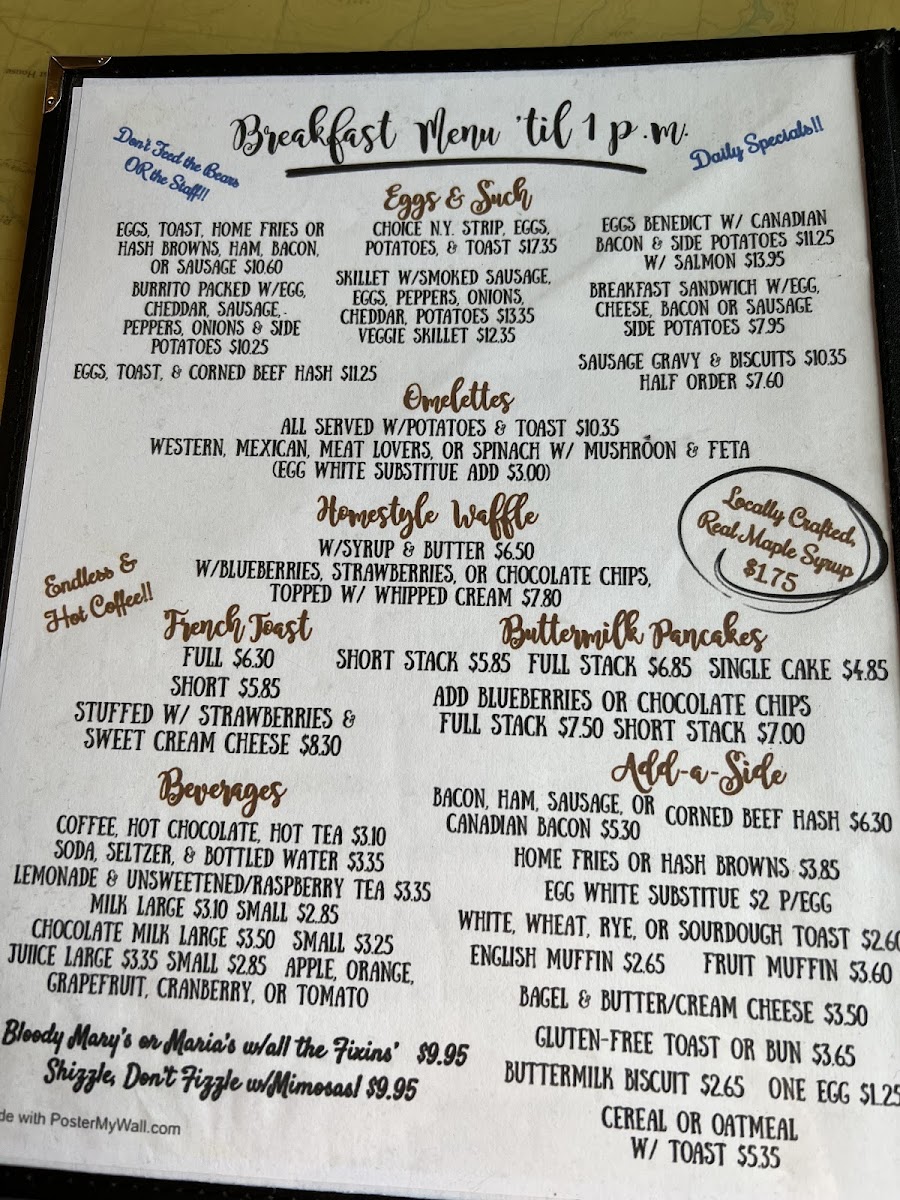 Breakfast Menu 'til 1 p.m.
Don't Feed the Bears
OR the Staff!!
Daily Specials!!
Eggs & Such
EGGS, TOAST, HOME FRIES OR
HASH BROWNS, HAM, BACON,
OR SAUSAGE $10.60
BURRITO PACKED W/EGG,
CHEDDAR, SAUSAGE,
PEPPERS, ONIONS & SIDE
POTATOES $10.25
EGGS, TOAST, & CORNED BEEF HASH $11.25
CHOICE N.Y. STRIP, EGGS,
POTATOES, & TOAST $17.35
SKILLET W/SMOKED SAUSAGE,
EGGS, PEPPERS, ONIONS,
CHEDDAR, POTATOES $13.35
VEGGIE SKILLET $12.35
EGGS BENEDICT W/ CANADIAN
BACON & SIDE POTATOES $11.25
W/ SALMON $13.95
BREAKFAST SANDWICH W/EGG,
CHEESE, BACON OR SAUSAGE
SIDE POTATOES $7.95
SAUSAGE GRAVY & BISCUITS $10.35
HALF ORDER $7.60
Omelettes
ALL SERVED W/POTATOES & TOAST $10.35
WESTERN, MEXICAN, MEAT LOVERS, OR SPINACH W/ MUSHROON & FETA
(EGG WHITE SUBSTITUE ADD $3.00)
Homestyle Waffle
W/SYRUP & BUTTER $6.50
W/BLUEBERRIES, STRAWBERRIES, OR CHOCOLATE CHIPS,
TOPPED W/ WHIPPED CREAM $7.80
Locally Crafted,
Real Maple Syrup
$1.75
Endless &
Hot Coffee!!
French Toast
FULL $6.30
SHORT $5.85
STUFFED W/ STRAWBERRIES &
SWEET CREAM CHEESE $8.30
Buttermilk Pancakes
SHORT STACK $5.85 FULL STACK $6.85 SINGLE CAKE $4.85
ADD BLUEBERRIES OR CHOCOLATE CHIPS
FULL STACK $7.50 SHORT STACK $7.00
Beverages
COFFEE, HOT CHOCOLATE, HOT TEA $3.10
SODA, SELTZER, & BOTTLED WATER $3.35
LEMONADE & UNSWEETENED/RASPBERRY TEA $3.35
MILK LARGE $3.10 SMALL $2.85
CHOCOLATE MILK LARGE $3.50 SMALL $3.25
JUIICE LARGE $3.35 SMALL $2.85 APPLE, ORANGE,
GRAPEFRUIT, CRANBERRY, OR TOMATO
Bloody Mary's or Maria's w/all the Fixins' $9.95
Shizzle, Don't Fizzle w/Mimosas! $9.95
Add-a-Side
BACON, HAM, SAUSAGE, OR
CANADIAN BACON $5.30
CORNED BEEF HASH $6.30
HOME FRIES OR HASH BROWNS $3.85
EGG WHITE SUBSTITUE $2 P/EGG
WHITE, WHEAT, RYE, OR SOURDOUGH TOAST $2.60
ENGLISH MUFFIN $2.65 FRUIT MUFFIN $3.60
BAGEL & BUTTER/CREAM CHEESE $3.50
GLUTEN-FREE TOAST OR BUN $3.65
BUTTERMILK BISCUIT $2.65 ONE EGG $1.25
CEREAL OR OATMEAL
W/ TOAST $5.35
de with PosterMyWall.com